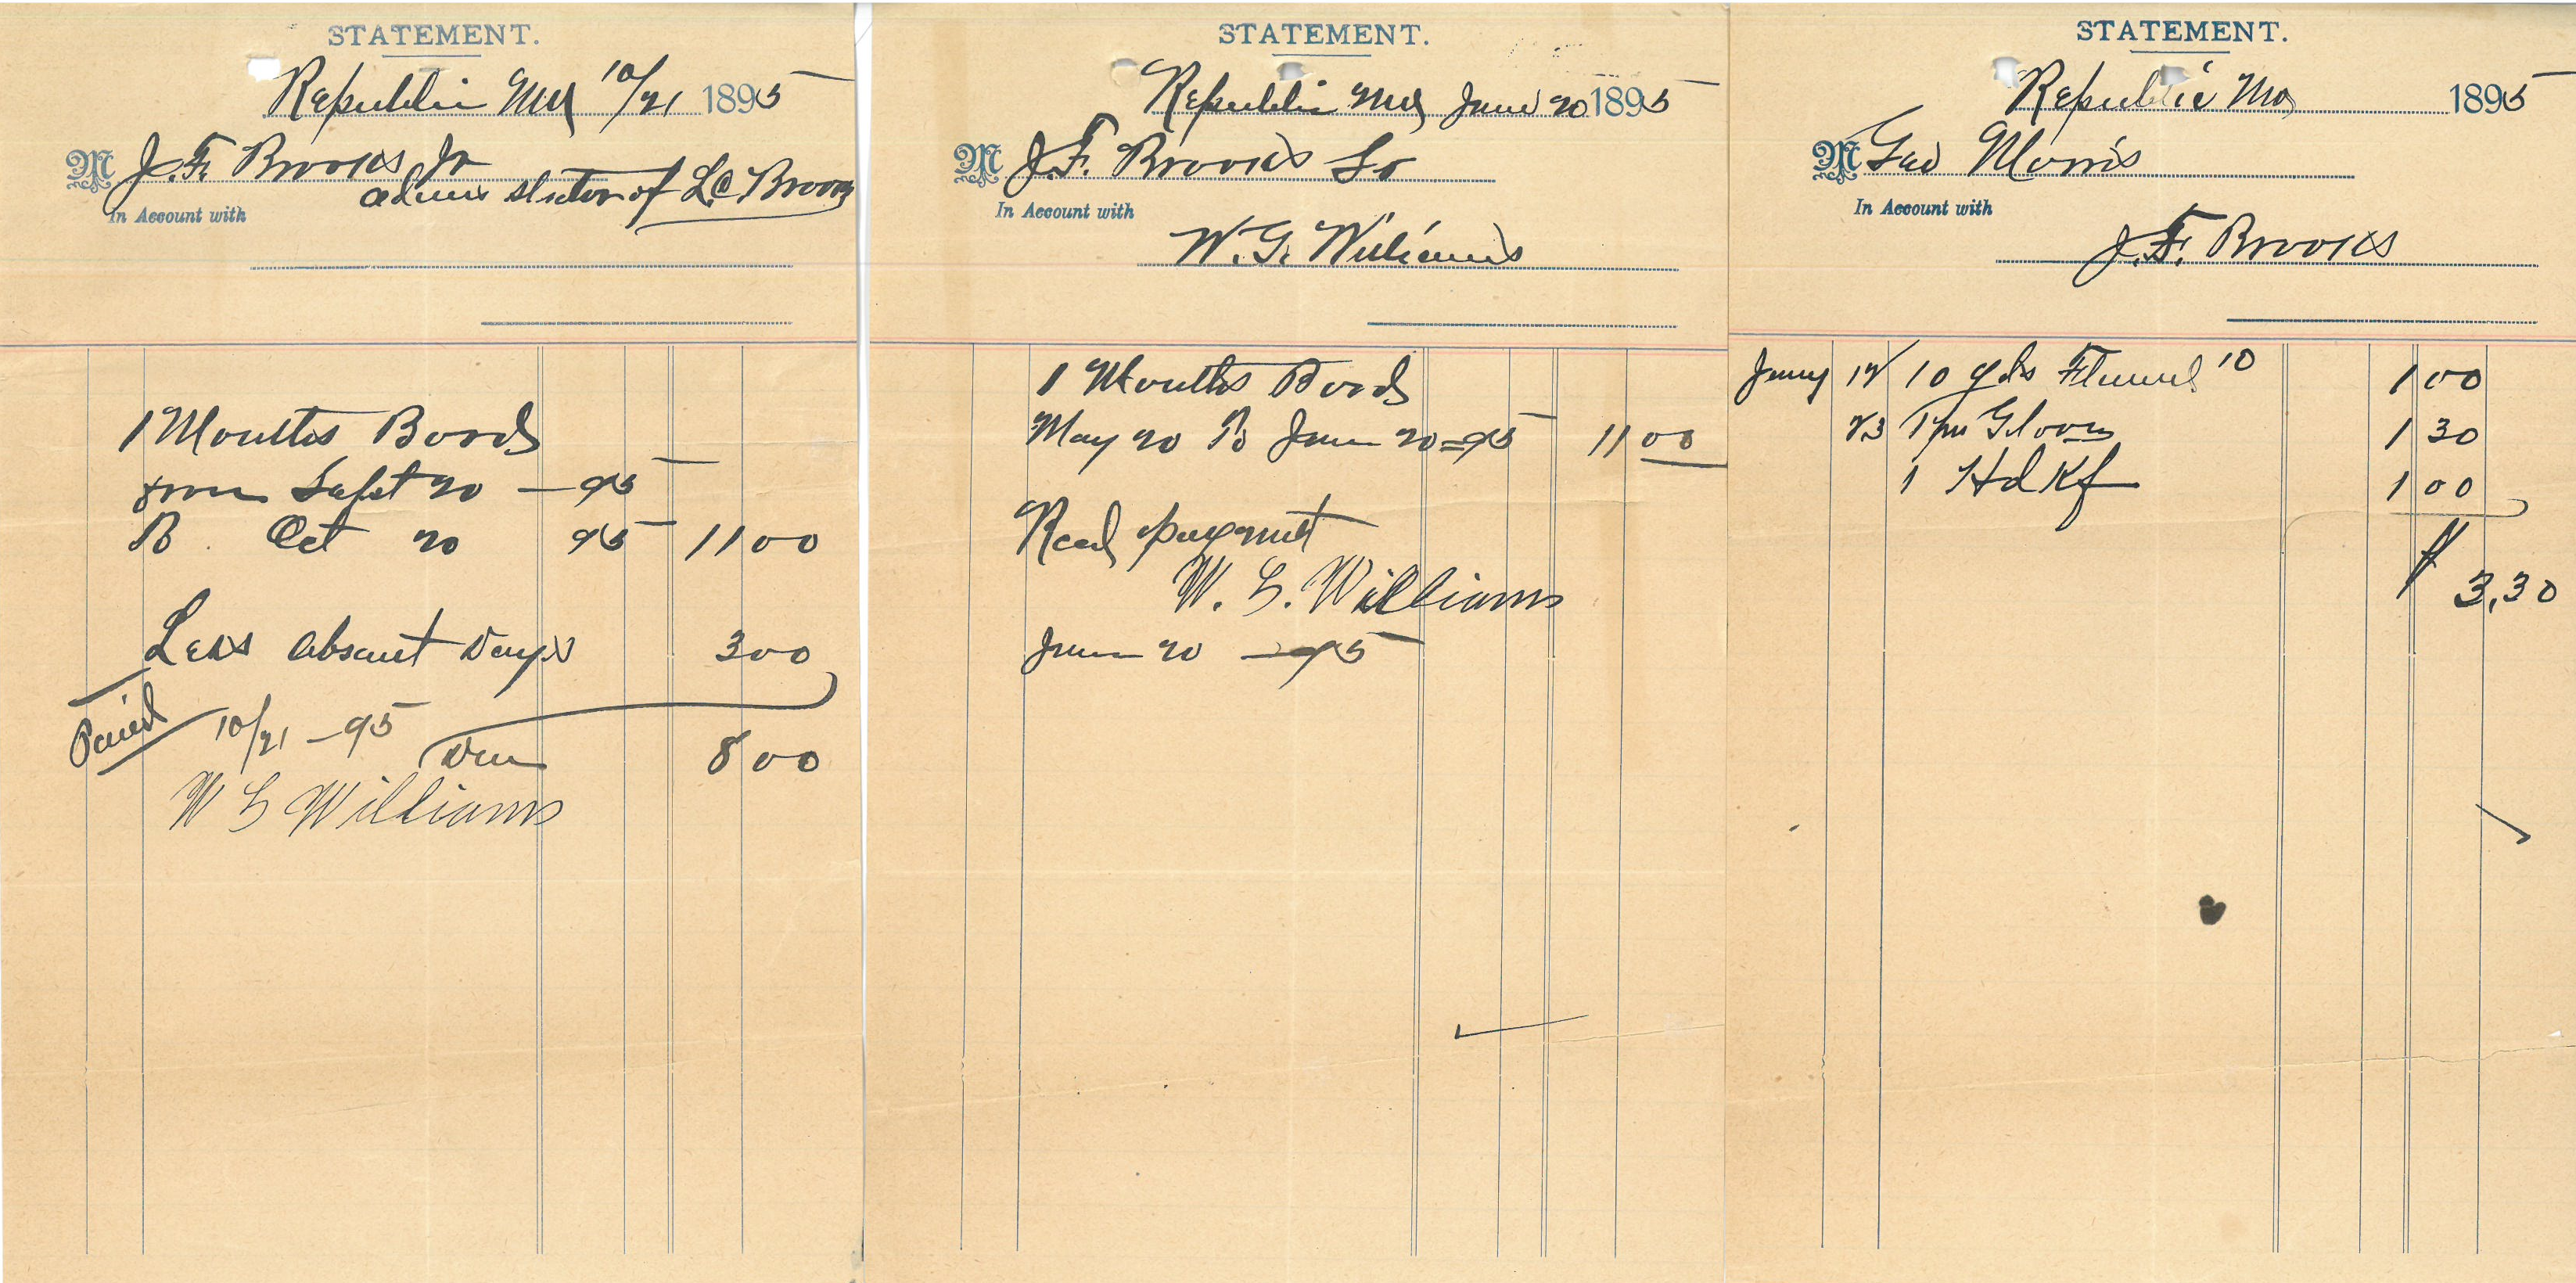 STATEMENT.
Republic Mo 10/21 1895
M J. F. Brooks Jr
administrator of L.C Brooks
In Account with
1 Months Board
from Sept 20 - 95
To Oct 20 95 11 00
Less absent Days 3 00
Paid 10/21 - 95
Due 8 00
W G Williams
STATEMENT.
Republic Mo June 20 1895
M J. F. Brooks Sr
In Account with
W. G. Williams
1 Months Board
May 20 To June 20 = 95 11 00
Recd payment
W. G. Williams
June 20 - 95
STATEMENT.
Republic Mo 1895
M Geo Morris
In Account with
J. F. Brooks
10 yds Flannel 10 1 00
23 1 pr Gloves 1 30
1 Hdkf 1 00
$ 3.30